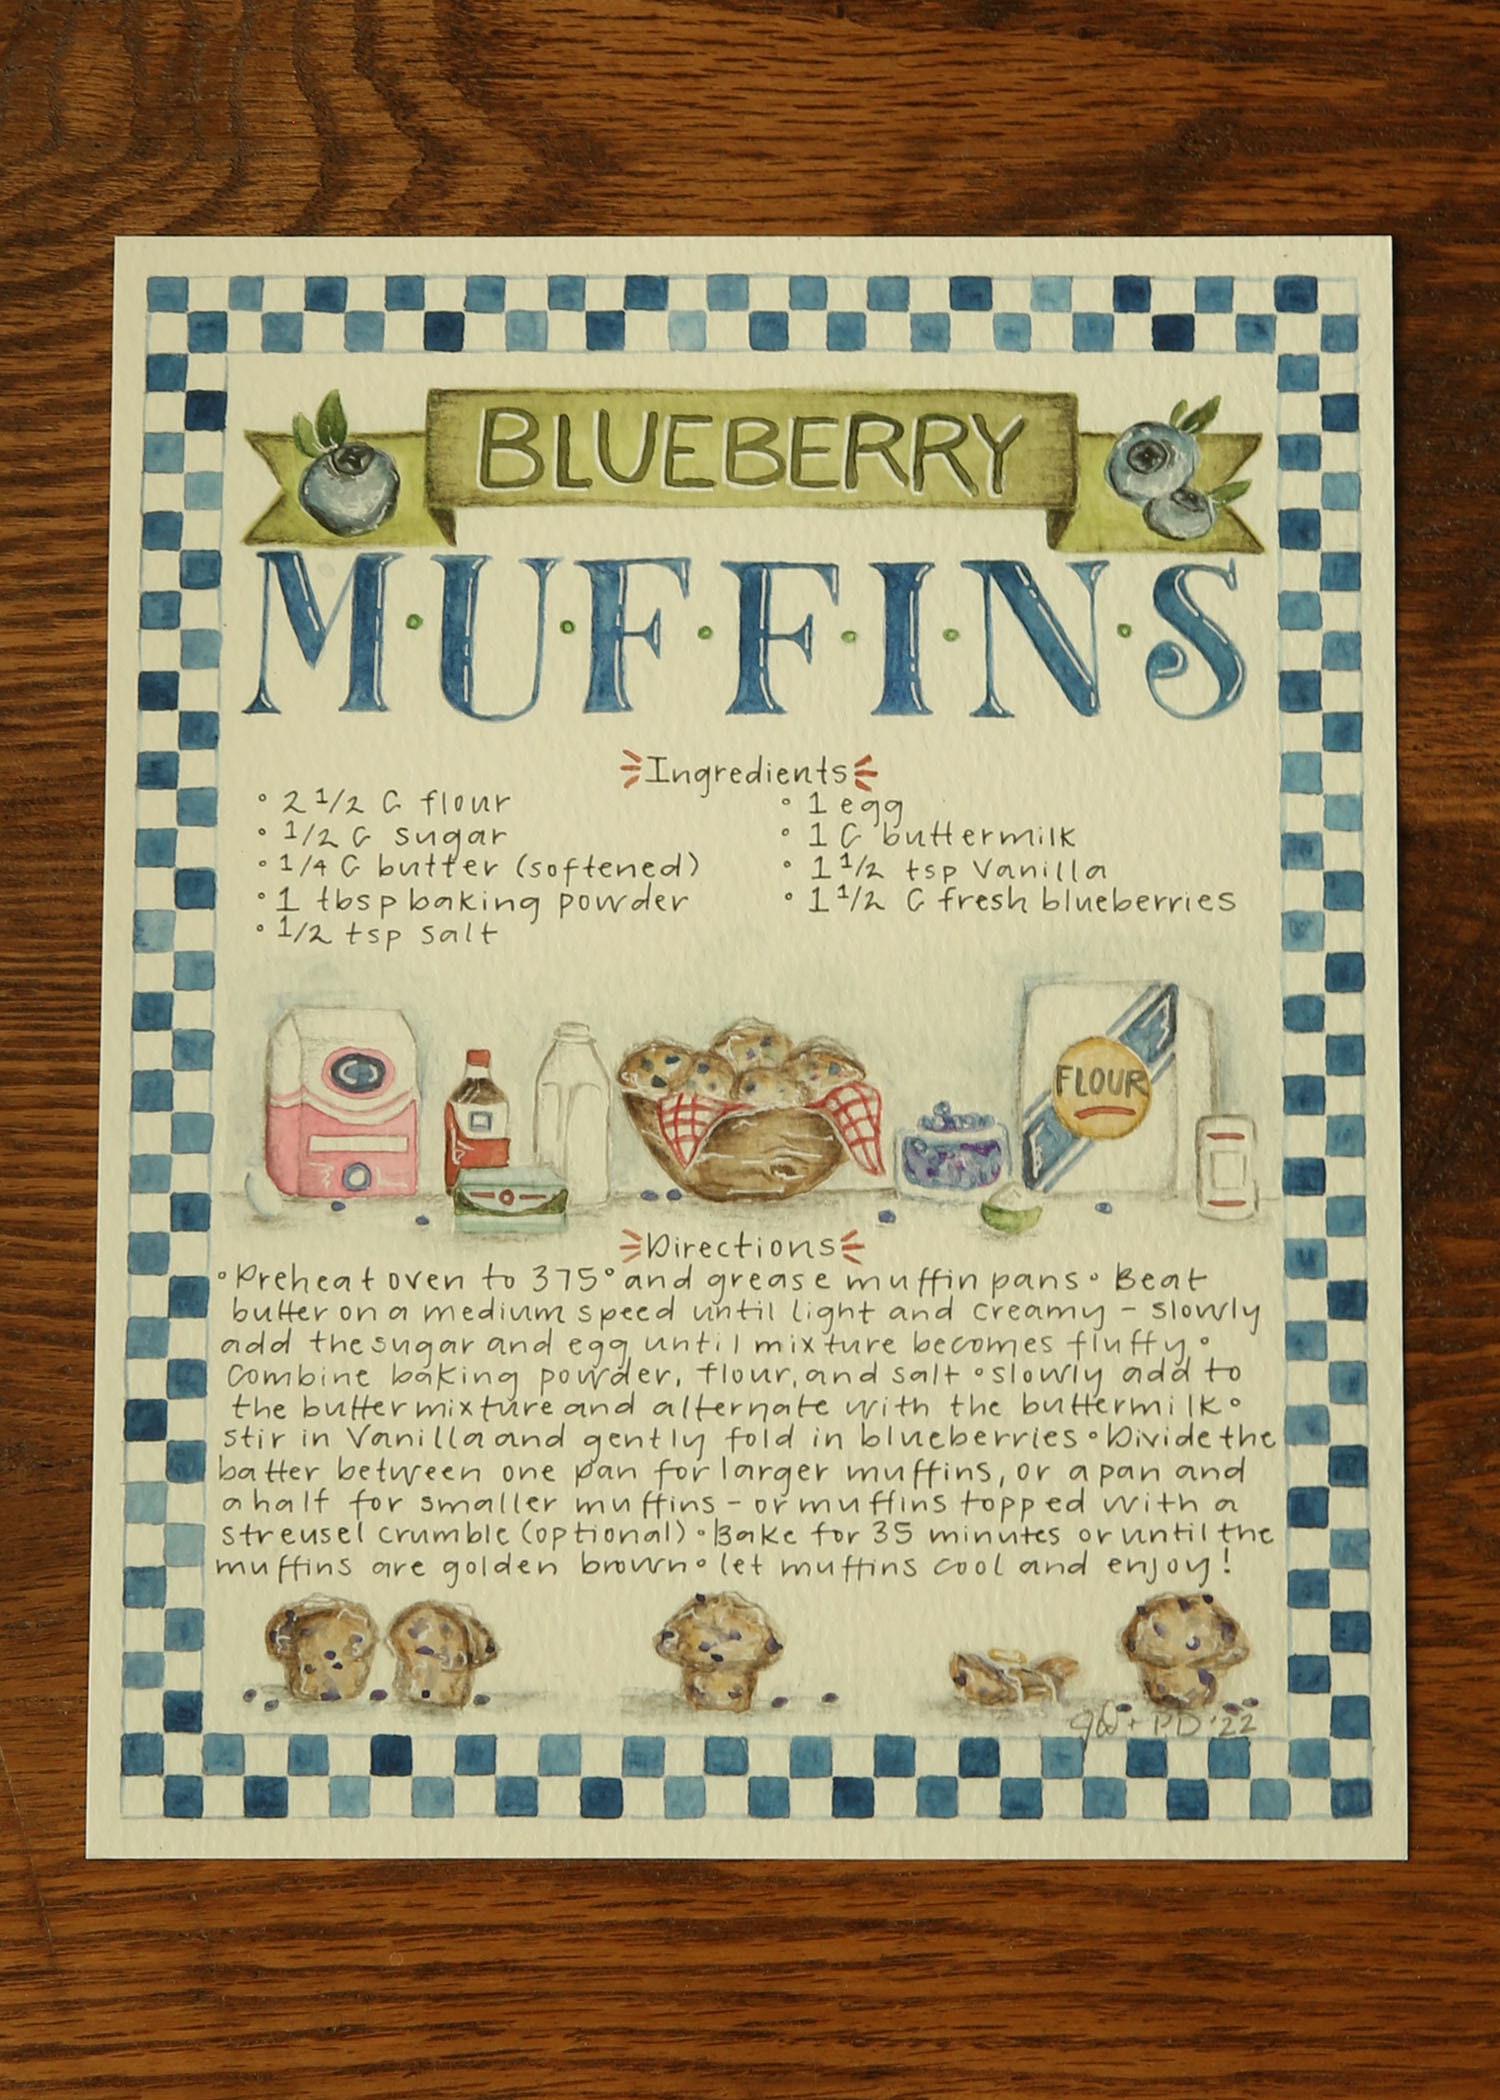 BLUEBERRY
M·U·F·F·I·N·S
Ingredients
• 2 1/2 C flour
• 1/2 C sugar
• 1/4 C butter (softened)
• 1 tbsp baking powder
• 1/2 tsp salt
• 1 egg
• 1 C buttermilk
• 1 1/2 tsp Vanilla
• 1 1/2 C fresh blueberries
FLOUR
Directions
• Preheat oven to 375° and grease muffin pans • Beat
butter on a medium speed until light and creamy - slowly
add the sugar and egg until mixture becomes fluffy •
Combine baking powder, flour, and salt • slowly add to
the butter mixture and alternate with the buttermilk •
stir in Vanilla and gently fold in blueberries • Divide the
batter between one pan for larger muffins, or a pan and
a half for smaller muffins - or muffins topped with a
streusel crumble (optional) • Bake for 35 minutes or until the
muffins are golden brown • let muffins cool and enjoy!
+ PD '22